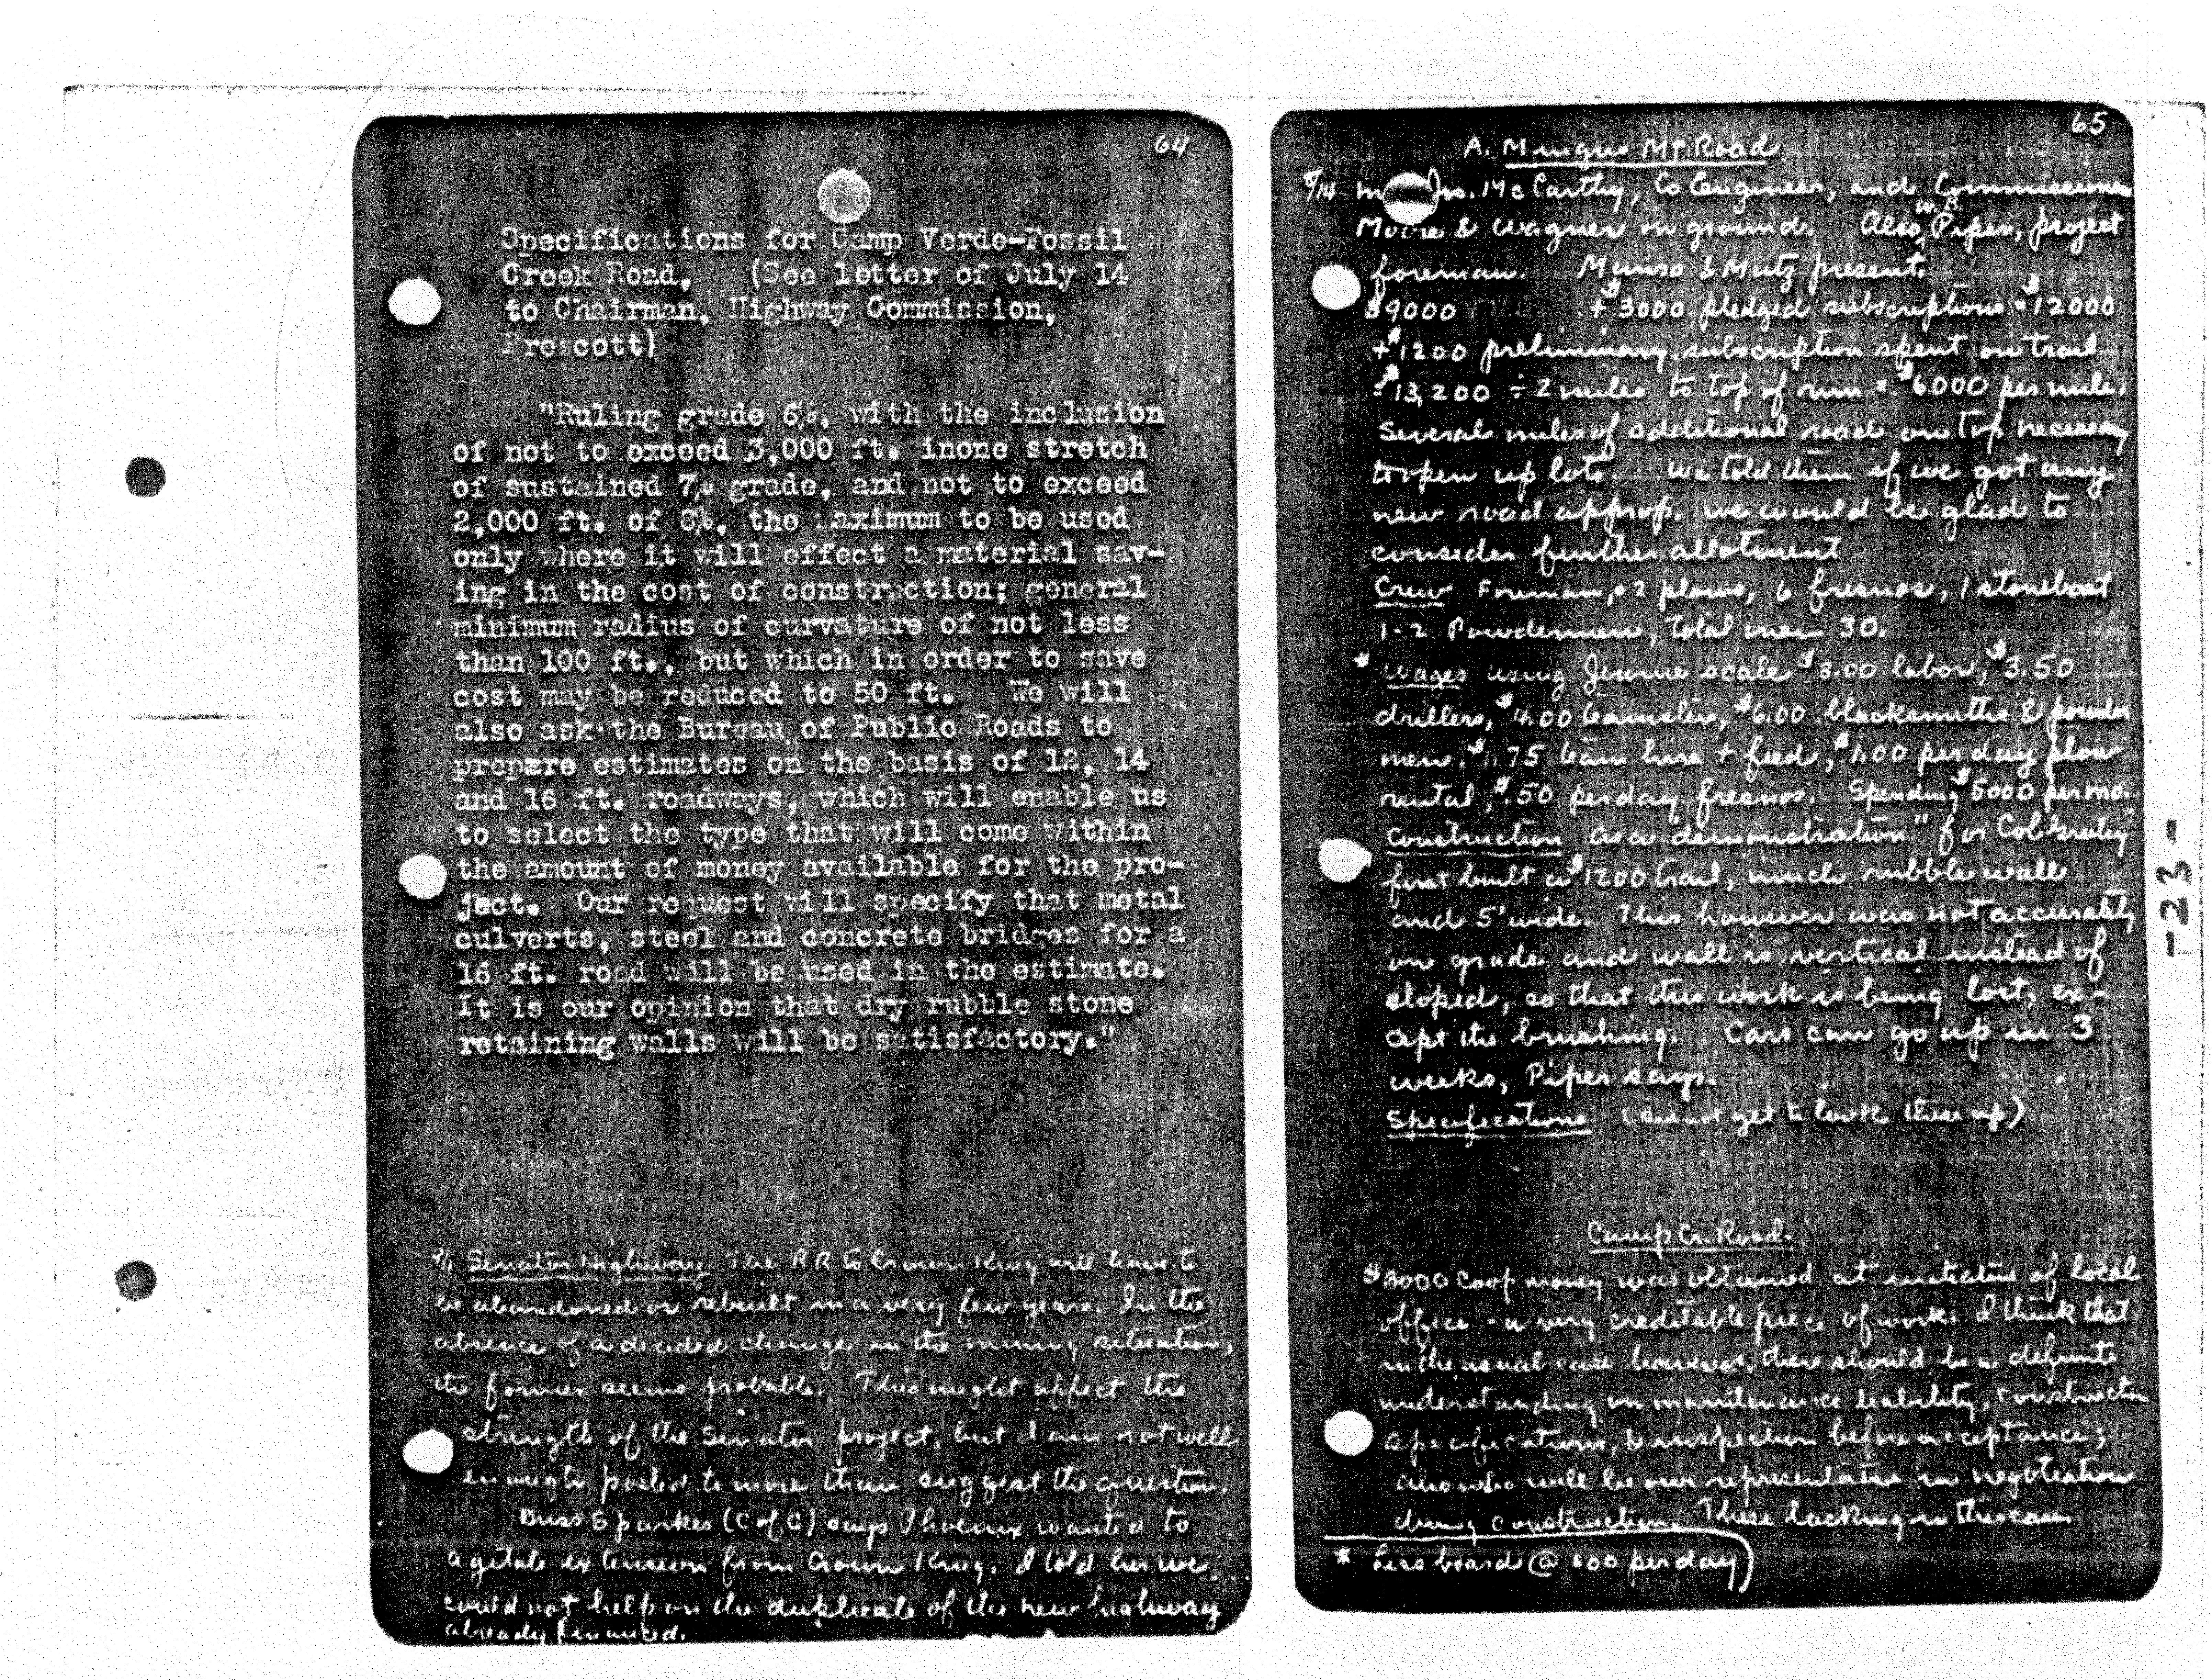 64
Specifications for Camp Verde-Fossil
Creek Road, (See letter of July 14
to Chairman, Highway Commission,
Prescott)
"Ruling grade 6%, with the inclusion
of not to exceed 3,000 ft. inone stretch
of sustained 7% grade, and not to exceed
2,000 ft. of 8%, the maximum to be used
only where it will effect a material sav-
ing in the cost of construction; general
minimum radius of curvature of not less
than 100 ft., but which in order to save
cost may be reduced to 50 ft. We will
also ask the Bureau of Public Roads to
prepare estimates on the basis of 12, 14
and 16 ft. roadways, which will enable us
to select the type that will come within
the amount of money available for the pro-
ject. Our request will specify that metal
culverts, steel and concrete bridges for a
16 ft. road will be used in the estimate.
It is our opinion that dry rubble stone
retaining walls will be satisfactory."
9/1 Senator Highway The RR to Crown King will have to
be abandoned or rebuilt in a very few years. In the
absence of a decided change in the mining situation,
the former seems probable. This might affect the
strength of the Senator project, but I am not well
enough posted to more than suggest the question.
Buss Sparkes (C of C) says Phoenix wanted to
agitate extension from Crown King. I told her we
could not help on the duplicate of the new highway
already financed.
65
A. Mingus Mt Road.
8/14 Jno. McCarthy, Co Engineer, and Commissioners
Moore & Wagner on ground. Also W. B. Piper, project
foreman. Munro & Mutz present.
$9000 + $3000 pledged subscriptions = $12000
+ $1200 preliminary subscription spent on trail
= $13,200 ÷ 2 miles to top of rim = $6000 per mile.
Several miles of additional road on top necessary
to open up lots. We told them if we got any
new road approp. we would be glad to
consider further allotment
Crew Foreman, 2 plows, 6 fresnos, 1 stoneboat
1-2 Powdermen, Total men 30.
* Wages using Jerome scale $3.00 labor, $3.50
drillers, $4.00 teamsters, $6.00 blacksmiths & powder
men. $1.75 team hire + feed, $1.00 per day plow
rental, $.50 per day fresnos. Spending $5000 per mo.
Construction As a "demonstration" for Col Greeley
first built a $1200 trail, much rubble wall
and 5' wide. This however was not accurately
on grade and wall is vertical instead of
sloped, so that this work is being lost, ex-
cept the brushing. Cars can go up in 3
weeks, Piper says.
Specifications (Did not get to look these up)
Camp Cr. Road.
$3000 Coop money was obtained at initiative of local
office - a very creditable piece of work. I think that
in the usual case however, there should be a definite
understanding on maintenance liability, construction
specifications, & inspection before acceptance;
also who will be our representative in negotiation
during construction. These lacking in this case
* Less board @ 1.00 per day
-23-